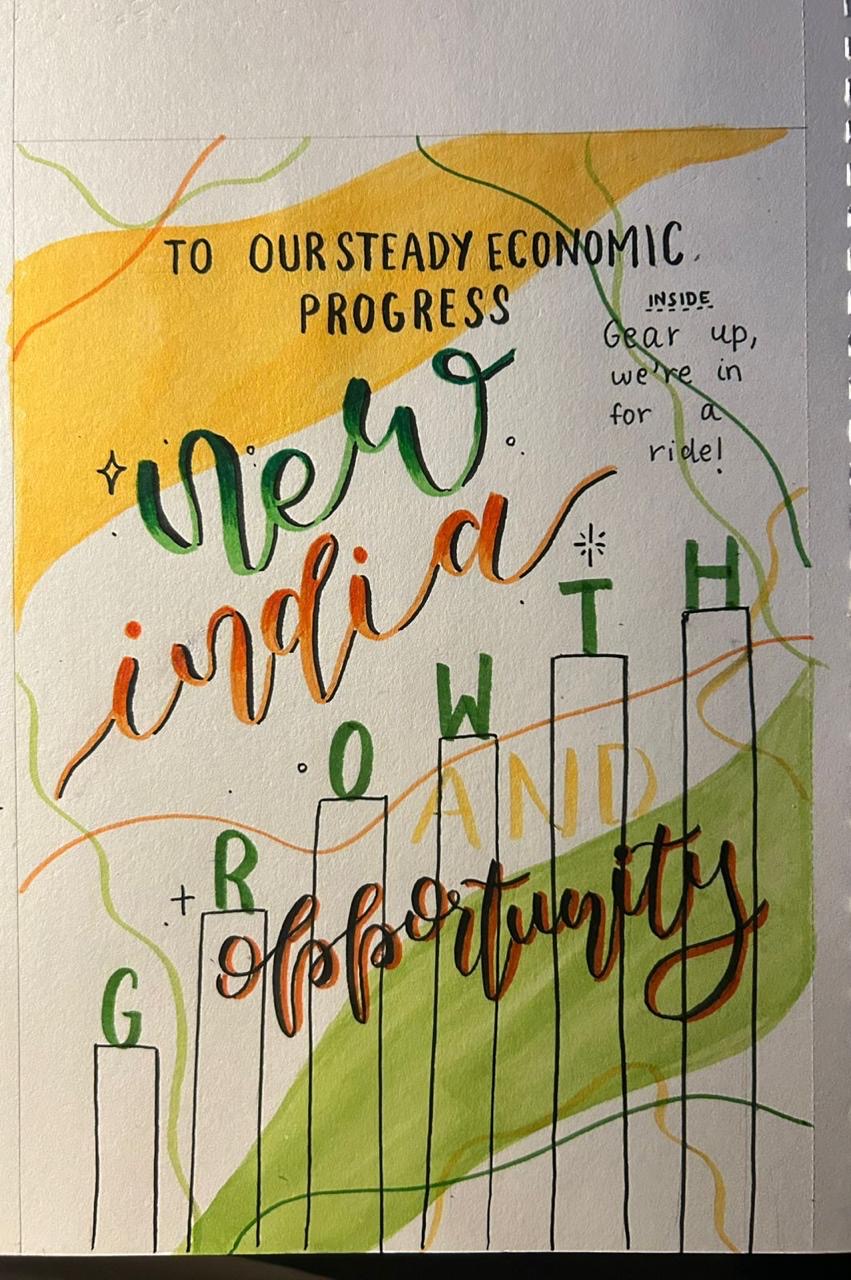 TO OUR STEADY ECONOMIC
PROGRESS
INSIDE
Gear up,
we're in
for a
ride!
new
india
GROWTH
AND
opportunity